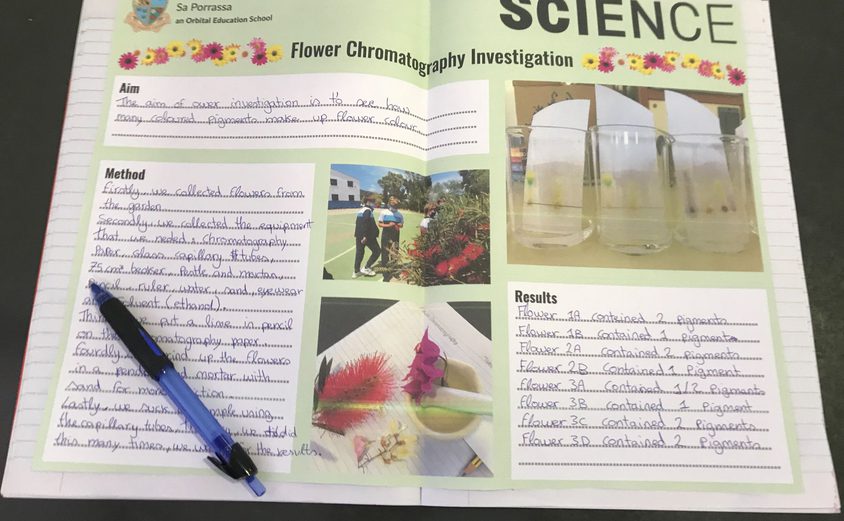 Sa Porrassa
an Orbital Education School
SCIENCE
Flower Chromatography Investigation
Aim
The aim of ower investigation is to see how
many coloured pigments make up flower colour
Method
Firstly, we collected flowers from
the garden
Secondly, we collected the equipment
That we neded: chromatography
Paper, glass capillary tubes,
75cm³ beaker, Pestle and mortar,
pencil, ruler, water, sand, eyewear
solvent (ethanol).
we put a line in pencil
on the chromatography paper
Fourdly, grind up the flowers
in a and mortar with
sand for more
Lastly, we suck sample using
the capillary tubes. we did
this many times, we for the results.
Results
Flower 1A contained 2 pigments
Flower 1B contained 1 pigment
Flower 2A contained 2 pigments
Flower 2B contained 1 pigment
Flower 3A contained 1/2 pigments
Flower 3B contained 1 pigment
Flower 3C contained 2 pigments
Flower 3D contained 2 pigments